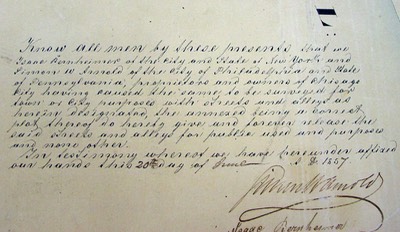 Know all men by these presents that we
Isaac Bernheimer of the City and State of New York and
Simon W Arnold of the City of Philadelphia and State
of Pennsylvania, proprietors and owners of Chicago
City having caused the same to be surveyed for
town or City purposes with streets and alleys as
herein designated, the annexed being a correct
plat thereof do hereby give and forever release the
said streets and alleys for public uses and purposes
and none other.
In testimony whereof we have hereunder affixed
our hands this 20th day of June A D 1857
Simon W Arnold
Isaac Bernheimer